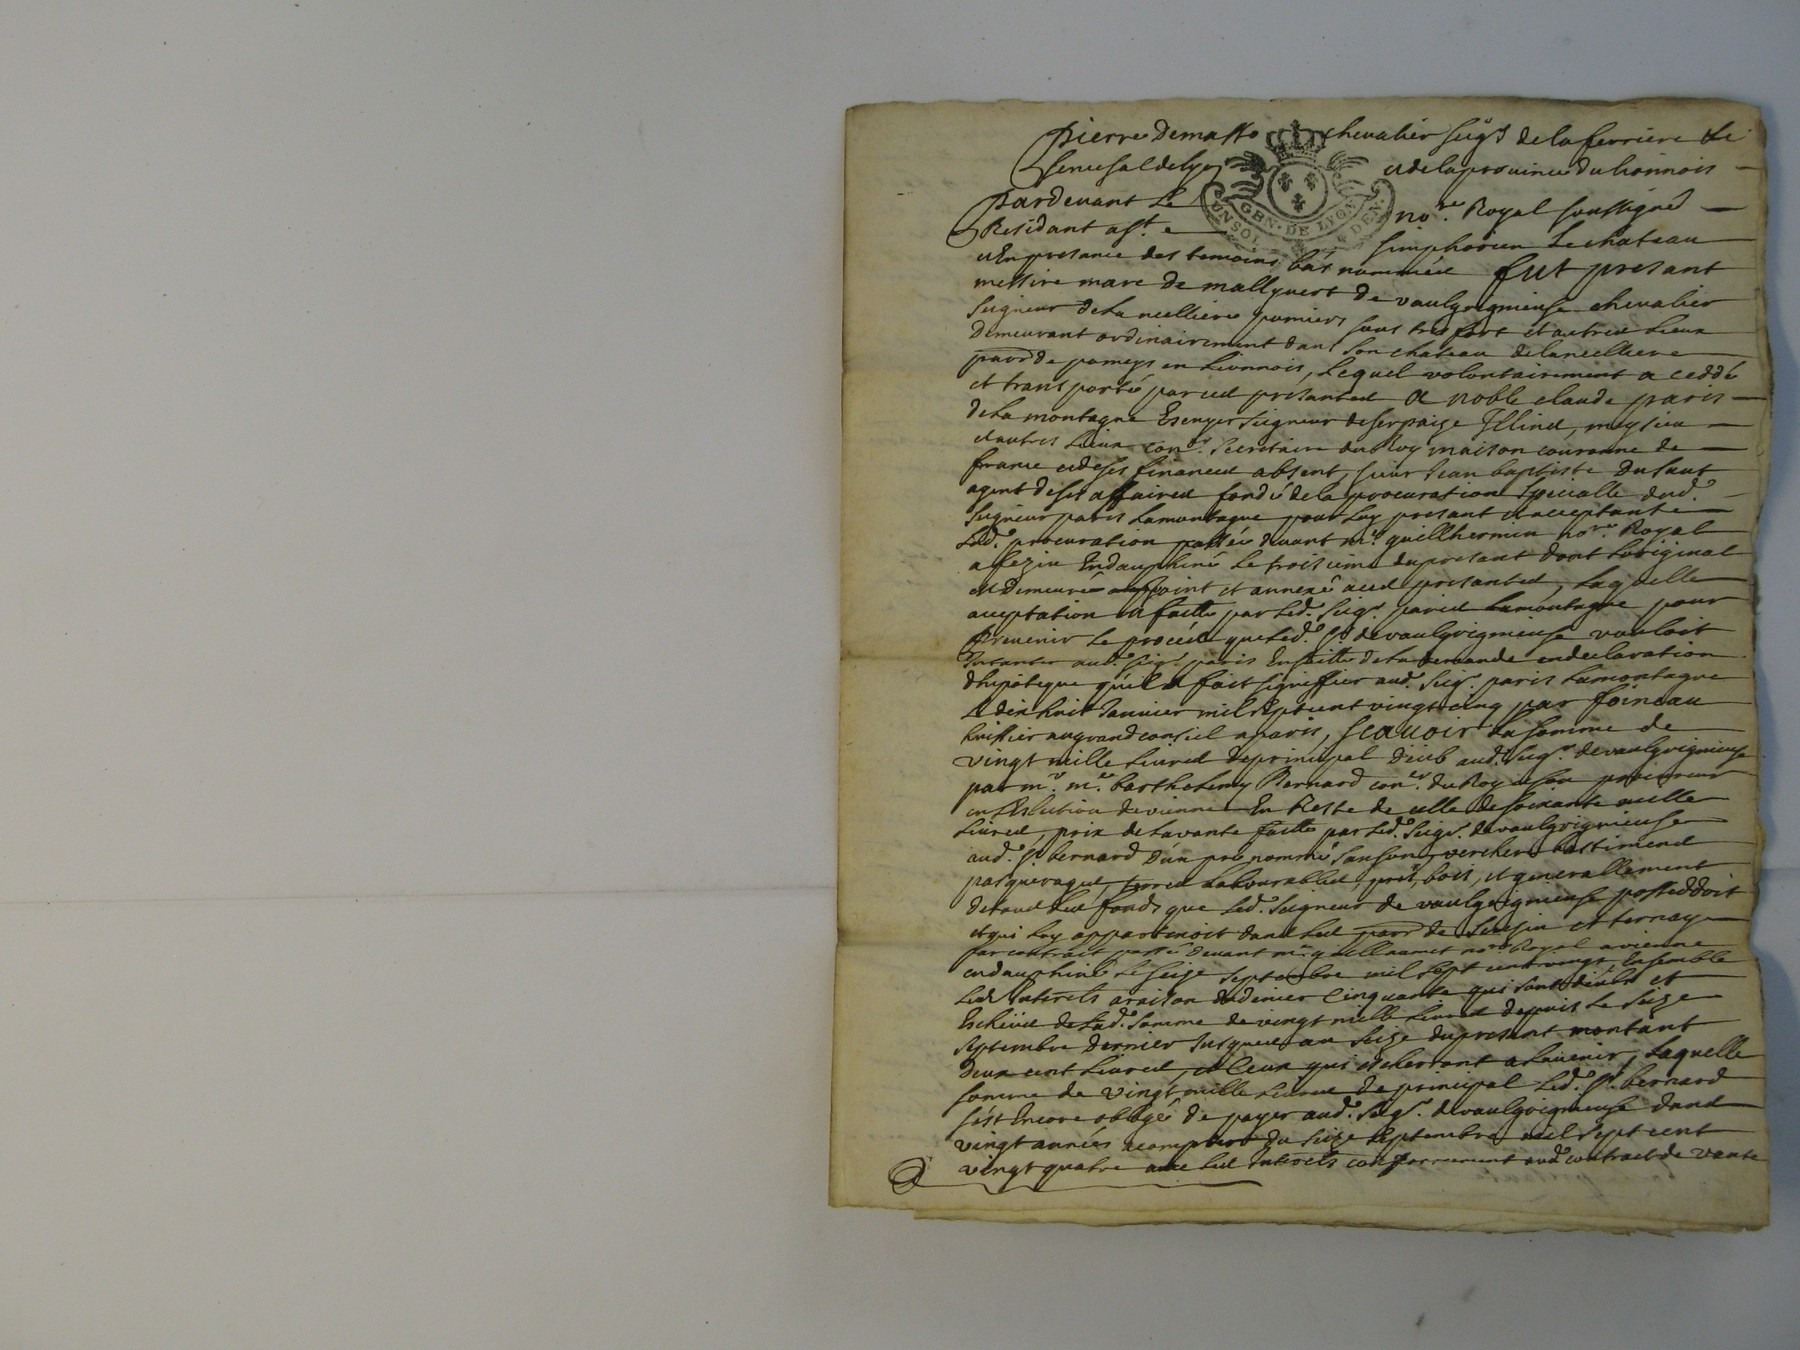 Pierre Demasso chevalier seigr de la ferriere Le
Senesal de Lyon et de la province du lionnois
GEN · DE LYON
UN SOL DEN
Pardevant Le nore Royal soussigné
Residant a St simphorien Le chateau
et En presance des temoins bas nommées fut presant
messire marc de mallyvert de vaulgrigneuse chevalier
Seigneur de La neelliere pomiers sous tres fort et autres Lieux
Demeurant ordinairement dans son chateau de la neelliere
parr de pomeys en Lionnois, Lequel volontairement a ceddé
et transporté par ces presantes a noble claude paris
de La montagne Escuyer Seigneur de serpaize Illins, meysieu
et autres Lieux conr Secretaire du Roy maison couronne de
france et de ses finances absent, sieur Jean baptiste Dusaut
agent de ses affaires fondé de la procuration specialle dud.
Seigneur paris Lamontagne pour Luy presant et acceptante
Lad. procuration passée devant me guillhermin nore Royal
a fezin En dauphiné Le troisieme du presant dont Loriginal
est demeuré joint et annexé aces presantes, Laquelle
aceptation est faitte par Led. Seigr. paris Lamontagne pour
Prevenir Le procés que Led. Sr. de vaulgrigneuse vouloit
Intanter aud. Seigr. paris En suitte de La demande en declaration
dhipoteque qu'il a fait signiffier aud. Seigr. paris Lamontagne
Le dix huit Janvier mil sept cent vingt cinq par foineau
huissier au grand conseil a paris, scavoir La somme de
vingt mille Livres de principal deub aud. Seigr. de vaulgrigneuse
par mr. me. barthelemy Bernard conr. du Roy et son procureur
en L'election de vienne En Reste de celle de soixante mille
Livres, prix de La vante faitte par Led. Seigr. de vaulgrigneuse
aud. Sr. bernard d'un pré nommé Sanson, verchere bastiments
pasquerages, terres Labourables, prés, bois, et generallement
de tous Les fonds que Led. Seigneur de vaulgrigneuse posseddoit
et qui Luy appartenoit dans Les parr de et ternay
par contrat passé devant me guillaumet nore Royal a vienne
en dauphiné Le seize Septembre mil sept cent vingt, Ensemble
Les Interets a raison du denier cinquante qui sont deubs et
Escheus de Lad. somme de vingt mille Livres depuis Le seize
Septembre dernier Jusques au seize du presant montant
Deux cent Livres, et Ceux qui écherront a Lavenir, Laquelle
somme de vingt mille Livres de principal Led. Sr. bernard
s'est Encore obligé de payer aud. Seigr. de vaulgrigneuse dans
vingt années a compter du seize Septembre mil sept cent
vingt quatre avec Les Interets conformement aud. contract de vante